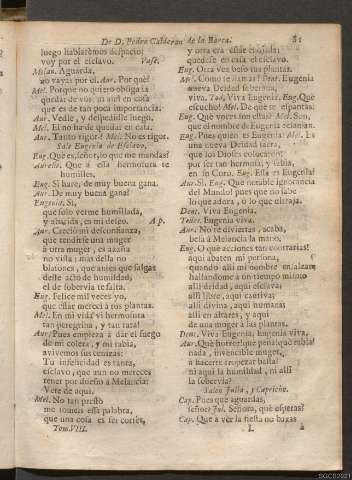 De D. Pedro Calderon de la Barca. 81
luego hablarèmos despacio;
voy por el esclavo. Vase.
Melan. Aguarda,
no vayas por él. Aur. Por què?
Mel. Porque no quiero obligarla
quedar de vos: ni aun en casa
que es de tan poca importancia.
Aur. Vedle, y despedidle luego.
Mel. El no ha de quedar en casa.
Aur. Tanto rigor? Mel. No es rigor.
Sale Eugenia de Esclavo.
Eug. Què es, señor, lo que me mandas?
Aurelio. Que à esta hermosura te
humilles.
Eug. Sí harè, de muy buena gana.
Aur. De muy buena gana?
Eugenia. Si,
que solo verme humillada,
y abatida, es mi deseo. Ap.
Aur. Creció mi desconfianza,
que rendirse una muger
à otra muger, es hazaña
no vista; mas della no
blasones, que antes que salgas
deste acto de humildad,
el de sobervia te falta.
Eug. Felice mil veces yo,
que estàr merecí à tus plantas.
Mel. En mi vida ví hermosura
tan peregrina, y tan rara!
Aur. Pues empieza à dàr el fuego
de mi colera, y mi rabia,
avivemos sus cenizas:
Tu infelicidad es tanta,
esclavo, que aun no mereces
tener por dueño à Melancia:
Vete de aqui.
Mel. No tan presto
me tomeis essa palabra,
que una cosa es ser cortès,
Tom. VIII.
y otra era estàr enojada;
quedese en casa el esclavo.
Eug. Otra vez beso tus plantas.
Mel. Como te llamas? Dent. Eugenia
nueva Deidad se llama,
viva. Tod. Viva Eugenia. Eug. Què
escucho! Mel. De què te espantas?
Eug. Què voces son estas? Sem. Son,
que el nombre de Eugenia aclaman.
Eug. Pues quien es Eugenia? Mel. Es
una nueva Deidad sacra,
que los Dioses colocaron,
por ser tan hermosa, y sabia,
en su Coro. Eug. Essa es Eugenia?
Aur. Si. Eug. Què notable ignorancia
del Mundo! pues que no sabe
lo que adora, ò lo que ultraja.
Dent. Viva Eugenia.
Todos. Eugenia viva.
Aur. No te diviertas, acaba,
besa à Melancia la mano.
Eug. O què acciones tan contrarias!
aqui abaten mi persona,
quando allí mi nombre ensalzan:
hallandome à un tiempo mismo
allí deidad, aqui esclava;
allí libre, aqui cautiva;
allí divina, aqui humana;
allí en altares, y aqui
de una muger à las plantas.
Dent. Viva Eugenia, Eugenia viva.
Aur. Què horror! què pena! què rabia!
nada, invencible muger,
à hacerte tropezar basta!
ni aqui la humildad, ni allí
la sobervia?
Salen Julia, y Capricho.
Cap. Pues què aguardas,
señor? Jul. Señora, què esperas?
Cap. Que à vèr la fiesta no baxas
L à